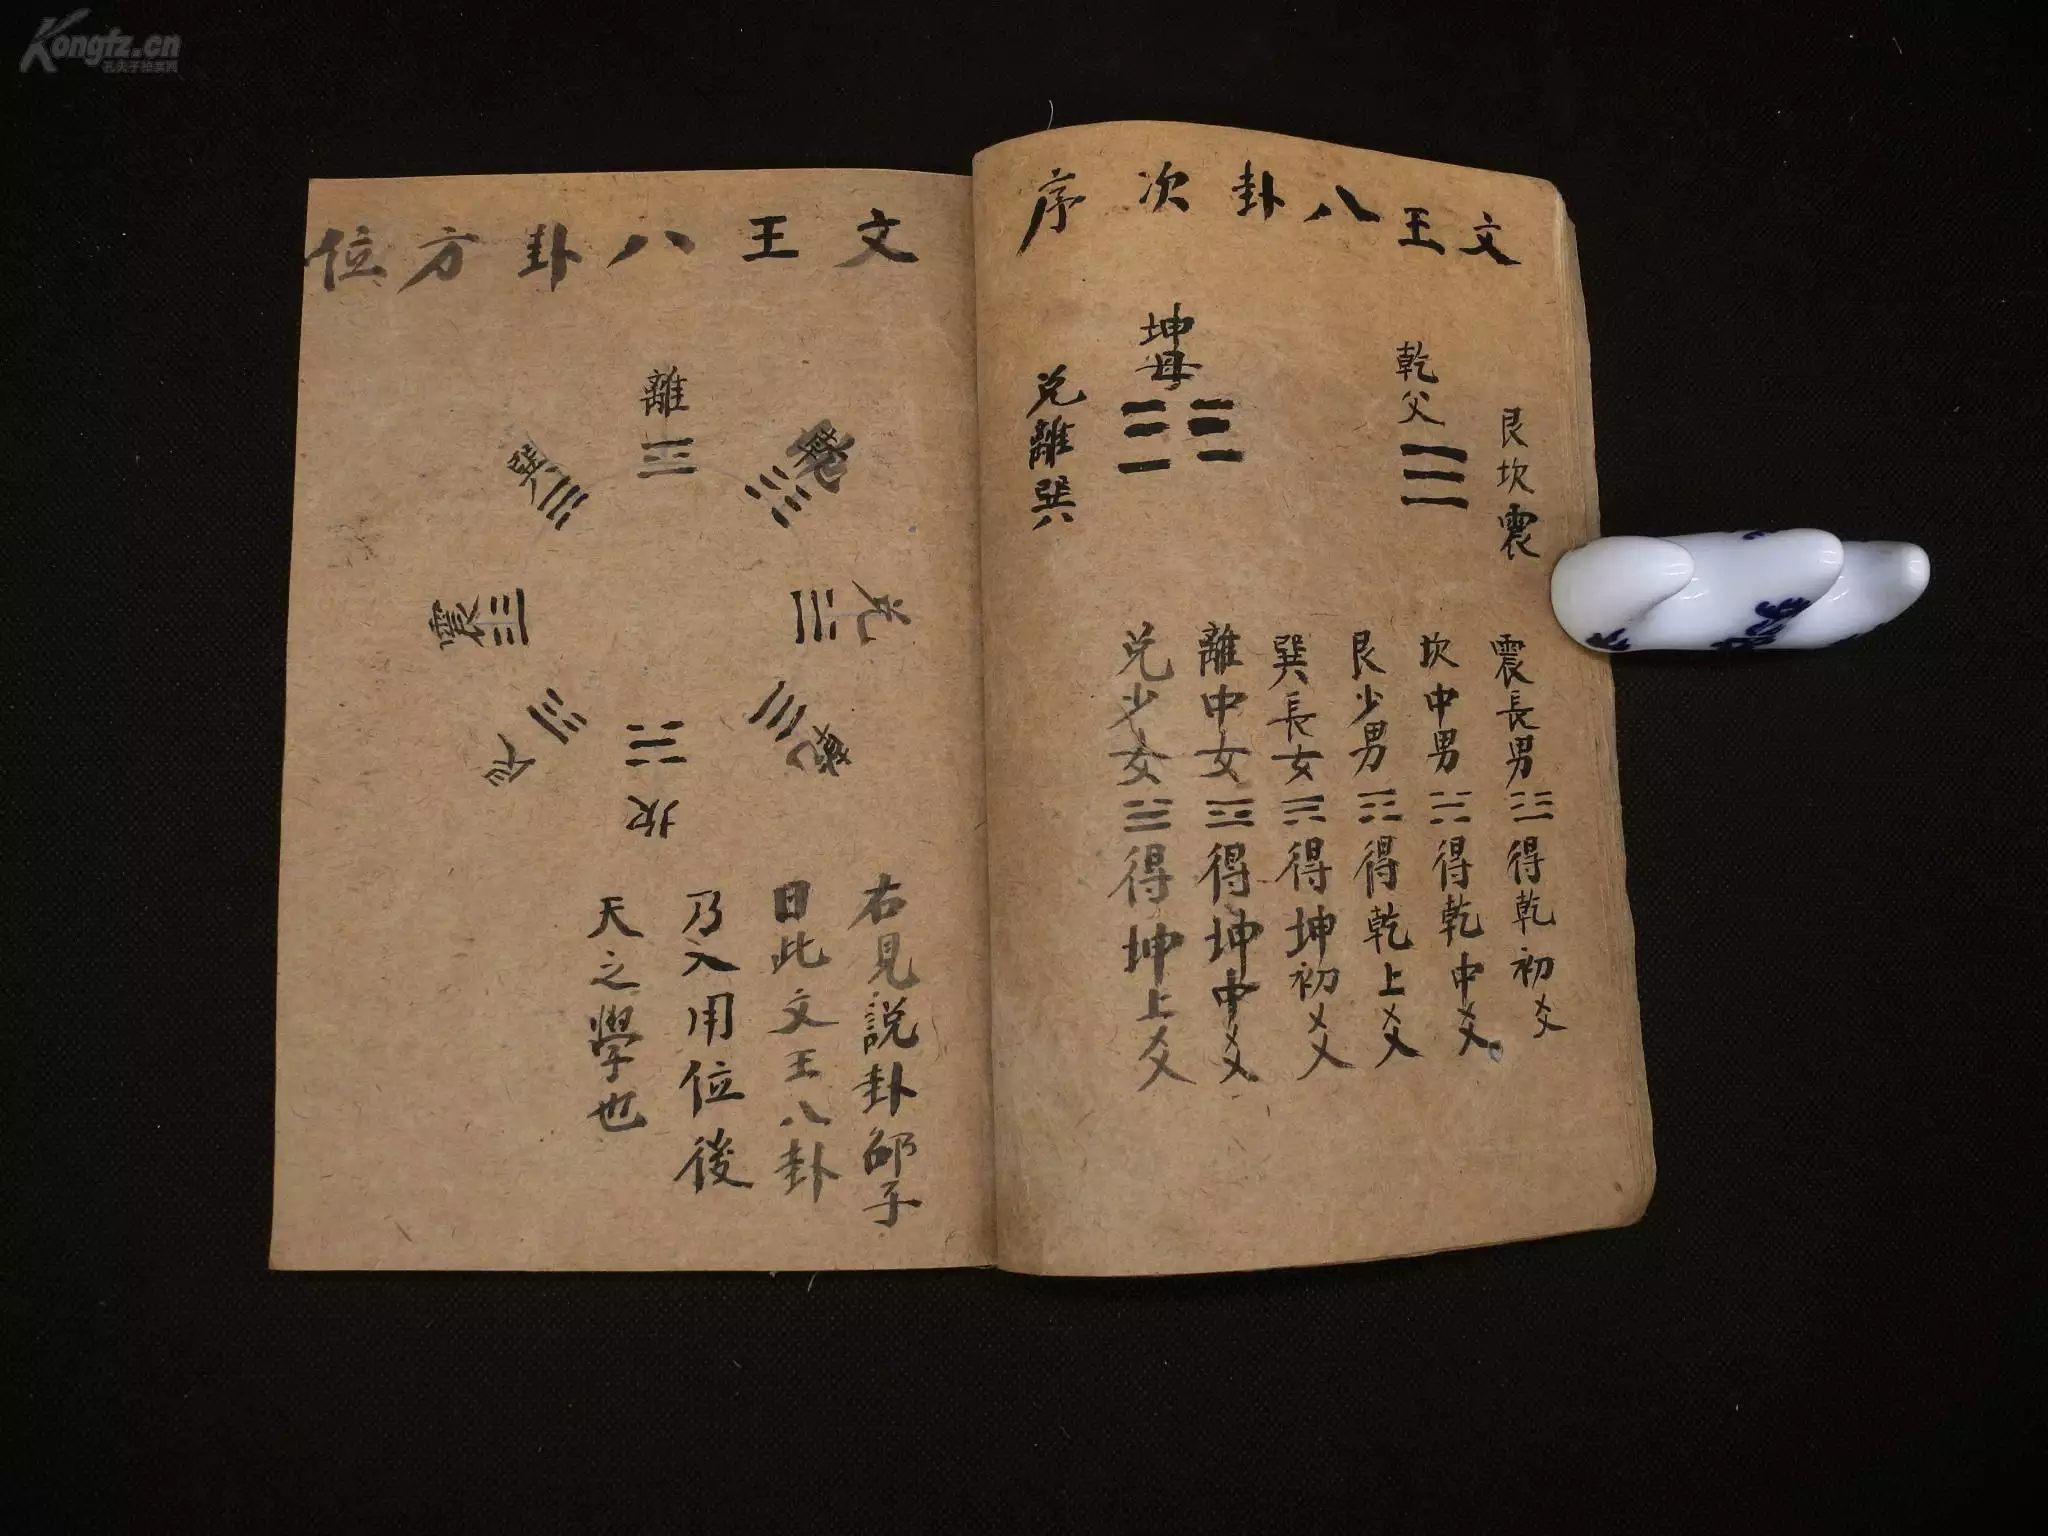 文王八卦次序
艮坎震
乾父
坤母
兌離巽
震長男☳得乾初爻
坎中男☵得乾中爻
艮少男☶得乾上爻
巽長女☴得坤初爻
離中女☲得坤中爻
兌少女☱得坤上爻
文王八卦方位
離
兌
乾
坎
震
巽
右見說卦邵子
曰此文王八卦
乃入用位後
天之學也
Kongfz.cn
孔夫子拍卖网